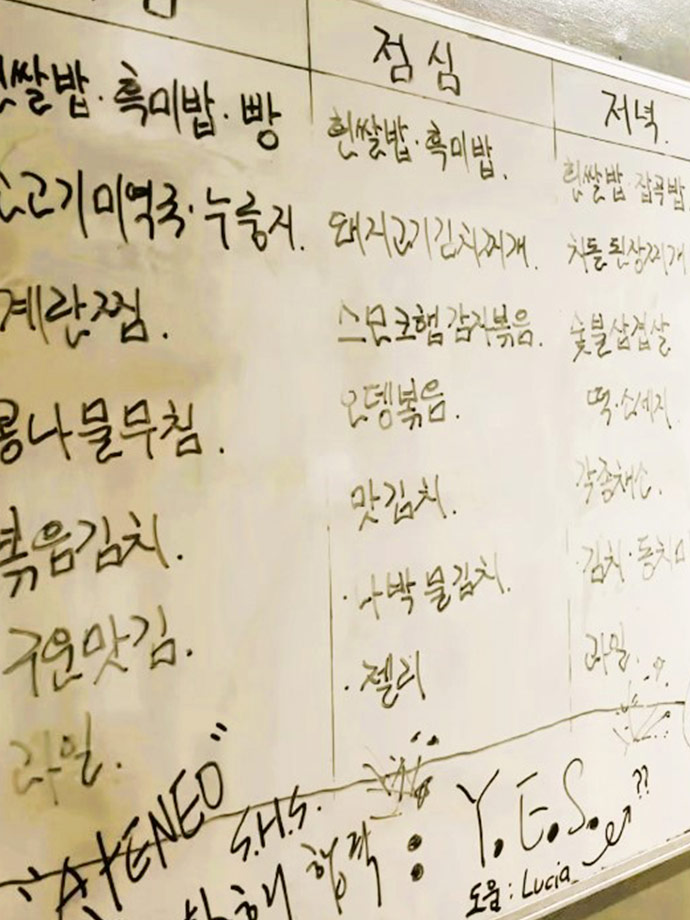 점심
저녁.
쌀밥·흑미밥·빵
흰쌀밥·흑미밥.
흰쌀밥·잡곡밥
고기미역국·누룽지.
돼지고기김치찌개.
차돌된장찌개
계란찜.
스모크햄감자볶음.
숯불삼겹살
콩나물무침.
오뎅볶음.
떡·소세지.
볶음김치.
맛김치.
각종채소.
구운맛김.
·나박물김치.
김치·동치미
과일.
·젤리
과일.
"ATENEO"
S.H.S.
합격: Y.E.S. ??
도움: Lucia